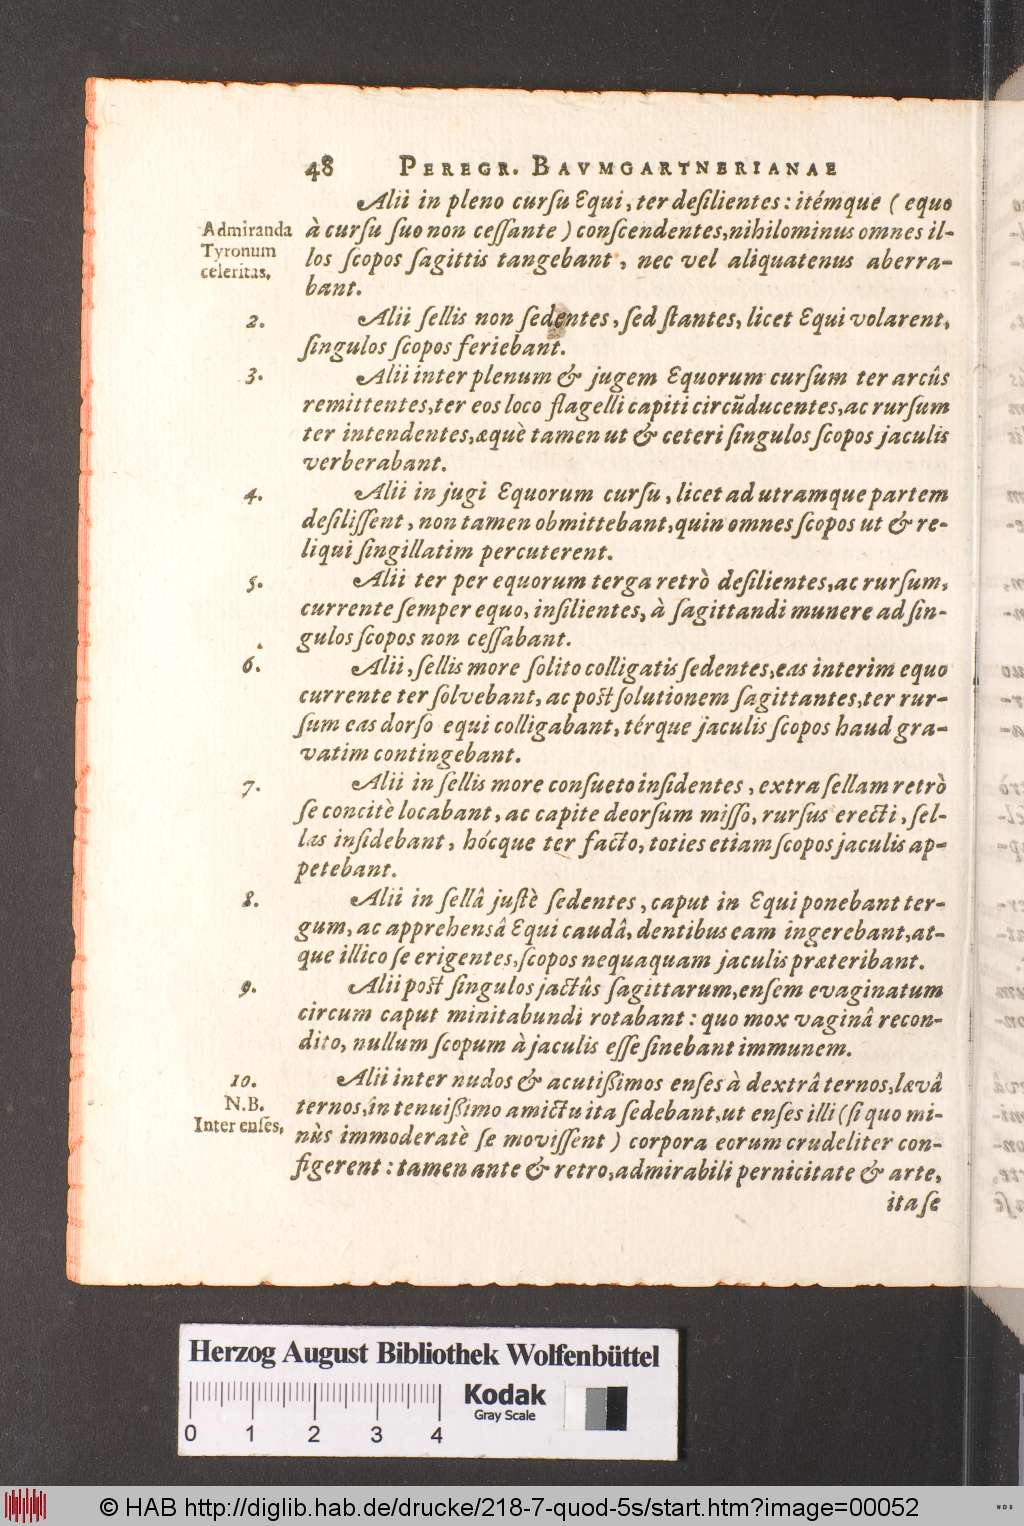 48 PEREGR. BAVMGARTNERIANAE
Alii in pleno cursu Equi, ter desilientes: itémque ( equo
Admiranda
Tyronum
celeritas.
à cursu suo non cessante ) conscendentes, nihilominus omnes il-
los scopos sagittis tangebant, nec vel aliquatenus aberra-
bant.
2. Alii sellis non sedentes, sed stantes, licet Equi volarent,
singulos scopos feriebant.
3. Alii inter plenum & jugem Equorum cursum ter arcûs
remittentes, ter eos loco flagelli capiti circũducentes, ac rursum
ter intendentes, æquè tamen ut & ceteri singulos scopos jaculis
verberabant.
4. Alii in jugi Equorum cursu, licet ad utramque partem
desilissent, non tamen obmittebant, quin omnes scopos ut & re-
liqui singillatim percuterent.
5. Alii ter per equorum terga retrò desilientes, ac rursum,
currente semper equo, insilientes, à sagittandi munere ad sin-
gulos scopos non cessabant.
6. Alii, sellis more solito colligatis sedentes, eas interim equo
currente ter solvebant, ac post solutionem sagittantes, ter rur-
sum eas dorso equi colligabant, térque jaculis scopos haud gra-
vatim contingebant.
7. Alii in sellis more consueto insidentes, extra sellam retrò
se concitè locabant, ac capite deorsum misso, rursus erecti, sel-
las insidebant, hócque ter facto, toties etiam scopos jaculis ap-
petebant.
8. Alii in sellâ justè sedentes, caput in Equi ponebant ter-
gum, ac apprehensâ Equi caudâ, dentibus eam ingerebant, at-
que illico se erigentes, scopos nequaquam jaculis præteribant.
9. Alii post singulos jactûs sagittarum, ensem evaginatum
circum caput minitabundi rotabant: quo mox vaginâ recon-
dito, nullum scopum à jaculis esse sinebant immunem.
10.
N.B.
Inter enses.
Alii inter nudos & acutißimos enses à dextrâ ternos, lævâ
ternos, in tenuißimo amictu ita sedebant, ut enses illi (si quo mi-
nùs immoderatè se movissent ) corpora eorum crudeliter con-
figerent: tamen ante & retro, admirabili pernicitate & arte,
ita se
Herzog August Bibliothek Wolfenbüttel
Kodak
Gray Scale
0 1 2 3 4
© HAB http://diglib.hab.de/drucke/218-7-quod-5s/start.htm?image=00052